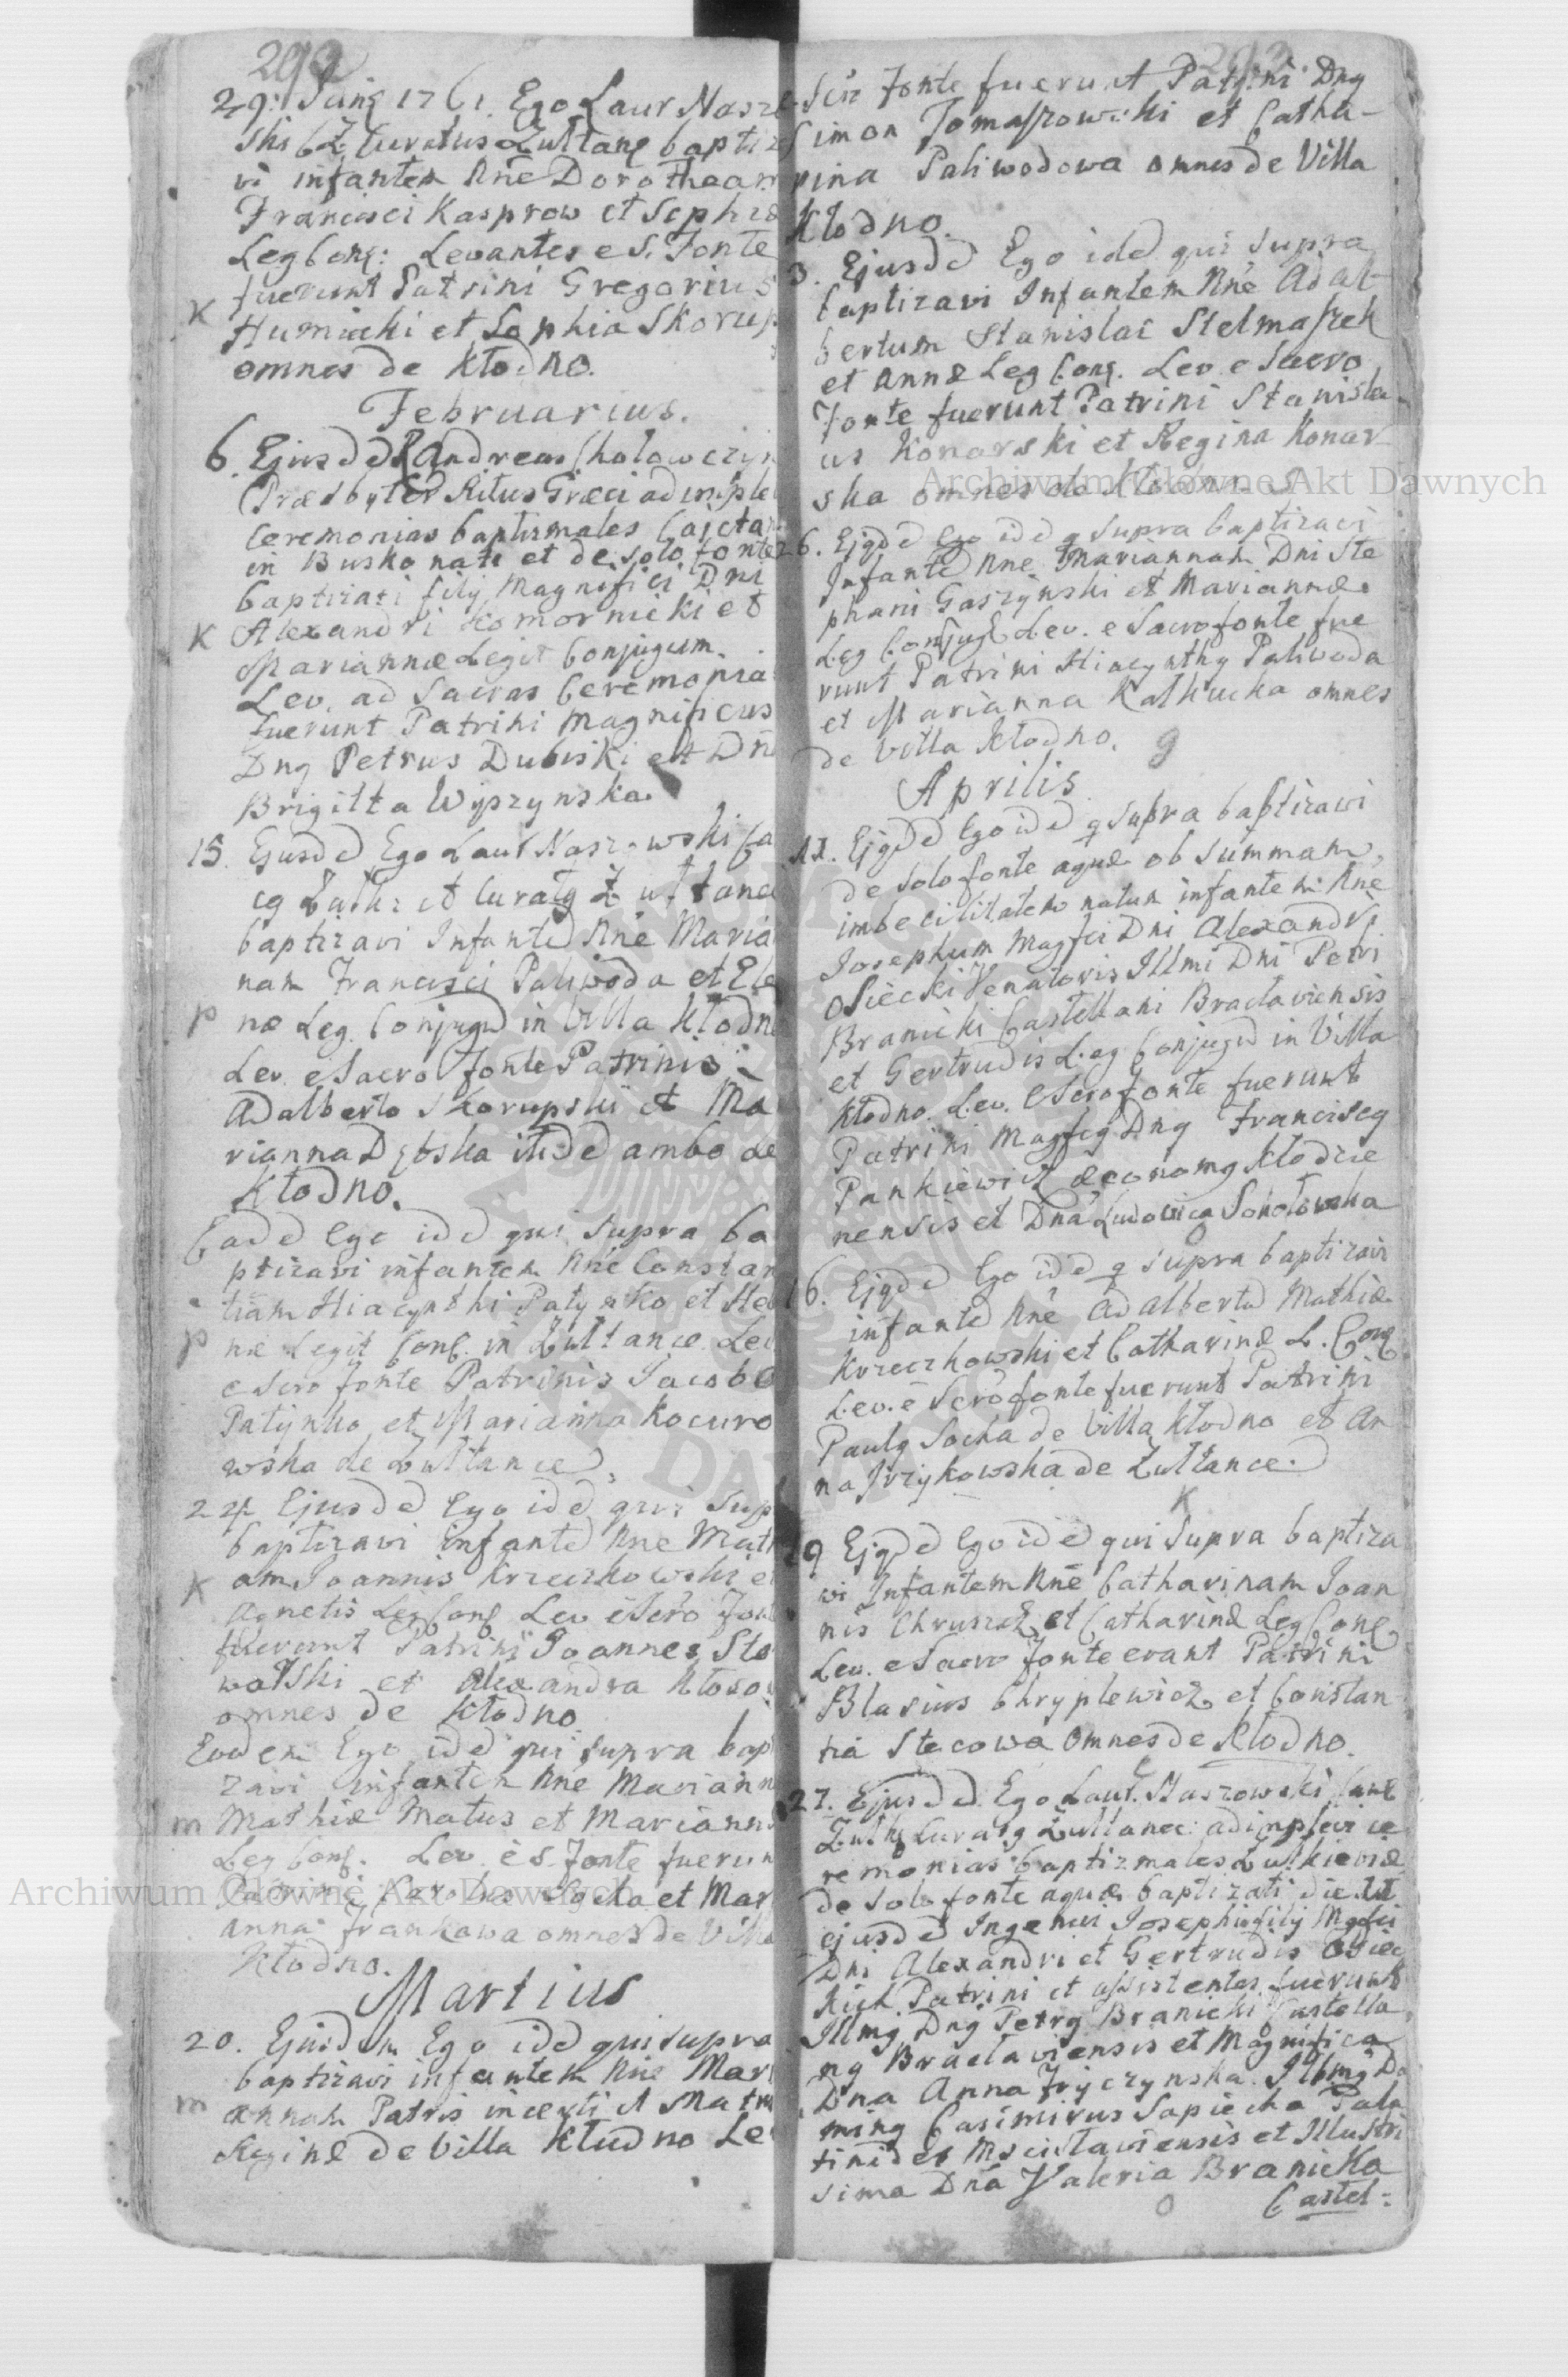 292
29. Junÿ 1761. Ego Laur Nasze
ski CZ Curatus Zultanę baptiz
vi infantem Nnē Dorotheam
Francisci Kasprow et Sophiæ
Leg Conj: Levantes e S. Fonte
fuerunt Patrini Gregorius
K
Humicki et Sophia Skorup
omnes de Kłodno.
Februarius.
6. Ejusdē Andreas Chołowczyn
Præsbyter Ritus Græci adimple
Ceremonias baptizmales Cajeta
in Busko nati et de solo fonte
baptizati filÿ Magnifici Dni
Alexandri Komornicki et
K
Mariannæ Legit Conjugum.
Lev. ad Sacras Ceremonia
fuerunt Patrini Magnificus
Dnꝰ Petrus Dubiski et Dn
Brigitta Wyszynska.
15. Ejusdē Ego Laur Naszowski Ca
et Curatꝰ Zułtane
baptizavi Infantē Nnē Maria
nam Francisci Paliwoda et Ele
p næ Leg. Conjugū in Villa Kłodn
Lev. e Sacro fonte Patrinis
Adalberto Skorupski et Ma
rianna Dębska itidē ambo de
Kłodno.
Eadē Ego idē qui supra ba
ptizavi infantem Nnē Constan
tiam Hiacynthi Patynko et He
p næ Legit Conj. in Zultance Lev
e Scrō fonte Patrinis Jacobo
Patynko et Marianna Kocuro
wska de Zultance.
24. Ejusdē Ego idē qui sup
baptizavi infantē Nnē Math
K am Joannis Krzeczkowski et
Agnetis Leg Conj Lev e Scrō Font
fuerunt Patrini Joannes Sto
wolski et Alexandra Kłoso
omnes de Kłodno
Eodem Ego idē qui supra bap
zavi infantem Nnē Mariann
m Mathiæ Matus et Mariannæ
Leg Conj. Lev. e S. Fonte fuerun
Patrini Karolus Socha et Mar
anna Frankowa omnes de Villa
Kłodno.
Martius
20. Ejusdem Ego idē qui supra
baptizavi infantem Nnē Mari
m annam Patris incerti et Matris
Reginæ de Villa Kłodno Le
293
Scro Fonte fuerunt Patrini Dnꝰ
Simon Tomaszowski et Catha-
rina Paliwodowa omnes de Villa
Kłodno.
3. Ejusdē Ego idē qui supra
baptizavi Infantem Nnē Adal
bertum Stanislai Stelmaszek
et Annæ Leg Conj. Lev. e Sacro
Fonte fuerunt Patrini Stanisla
us Konarski et Regina Konar
ska omnes de Kłodno.
26. Ejꝰdē Ego idē q supra baptizavi
Infantē Nnē Mariannam Dni Ste
phani Gaszynski et Mariannæ
Leg Conjugū Lev. e Sacro fonte fue
runt Patrini Hiacynthꝰ Paliwoda
et Marianna Kalkucka omnes
de Villa Kłodno. 9
Aprilis
11. Ejꝰdē Ego idē q supra baptizavi
de solo fonte aquæ ob summam
imbecilitatem natum infantem Nnē
Josephum Magfci Dni Alexandri
Osiecki Venatoris Illmi Dni Petri
Branicki Castellani Braclaviensis
et Gertrudis Leg Conjugū in Villa
Kłodno. Lev. e Scro fonte fuerunt
Patrini Magfcꝰ Dnꝰ Franciscꝰ
Pankiewicz æconomꝰ Kłodzie
nensis et Dna Ludovica Sokołowska
16. Ejꝰdē Ego idē q supra baptizavi
infantē Nnē Adalbertū Mathiæ
Krzeczkowski et Catharinæ L. Conj
Lev. e Scrō fonte fuerunt Patrini
Paulꝰ Socha de Villa Kłodno et An
na Jrzykowska de Zultance.
K
19 Ejꝰdē Ego idē qui supra baptiza
vi Infantem Nnē Catharinam Joan
nis Chruszcz et Catharinæ Leg Conj
Lev. e Sacro Fonte erant Patrini
Blasius Chryplewicz et Constan
tia Stecowa omnes de Kłodno.
27. Ejusdē Ego Laur. Naszowski Can
Curatꝰ Zultanec: adimplevi ce
remonias baptizmales Zułkieviæ
de solo fonte aquæ baptizati die 11
ejusdē Ingenui Josephi filÿ Mgfci
Dni Alexandri et Gertrudis Osiec
kich. Patrini et assistentes fuerunt
Illmꝰ Dnꝰ Petrꝰ Branicki Castella
nꝰ Braclaviensis et Magnifica
Dna Anna Fryczynska. Illmꝰ Do
minꝰ Casimirus Sapiecha Pala
tinides Mscisłaviensis et Illustri
sima Dna Valeria Branicka
Castel:
Archiwum Główne Akt Dawnych
Archiwum Główne Akt Dawnych